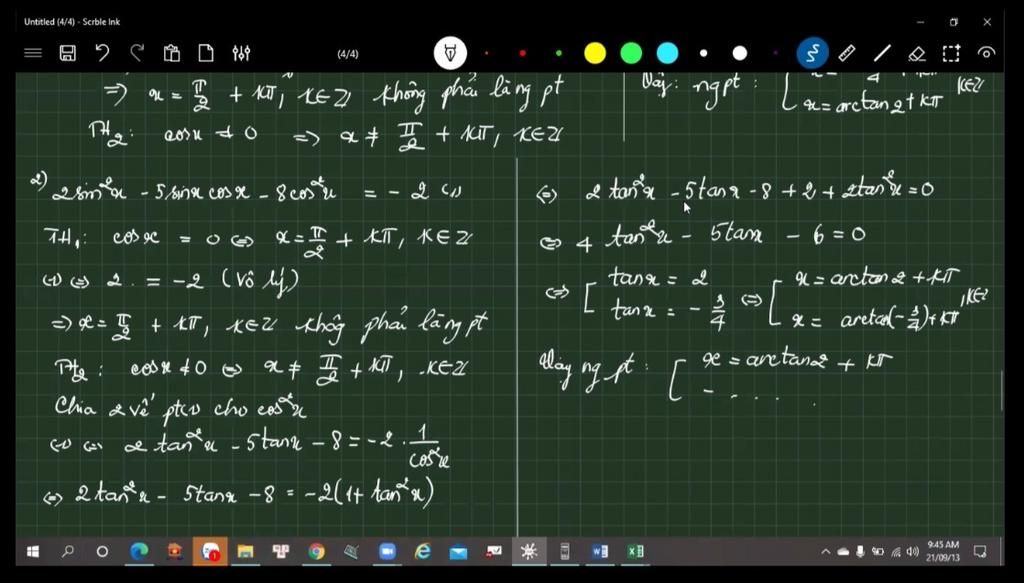 Untitled (4/4) - Scrble Ink
(4/4)
=> x = π/2 + kπ, k∈Z không phải là ng pt
TH₂: cosx ≠ 0 => x ≠ π/2 + kπ, k∈Z
Vậy: ng pt:
x = arctan2 + kπ
k∈Z
2) 2sin²x - 5sinx cosx - 8cos²x = -2 (1)
TH₁: cosx = 0 <=> x = π/2 + kπ, k∈Z
(1) <=> 2 = -2 (Vô lý)
=> x = π/2 + kπ, k∈Z không phải là ng pt
TH₂: cosx ≠ 0 <=> x ≠ π/2 + kπ, k∈Z
Chia 2 vế pt(1) cho cos²x
(1) <=> 2tan²x - 5tanx - 8 = -2 . 1/cos²x
<=> 2tan²x - 5tanx - 8 = -2(1 + tan²x)
<=> 2tan²x - 5tanx - 8 + 2 + 2tan²x = 0
<=> 4tan²x - 5tanx - 6 = 0
<=> [ tanx = 2 <=> [ x = arctan2 + kπ
tanx = -3/4 x = arctan(-3/4) + kπ , k∈Z
Vậy ng pt: [ x = arctan2 + kπ
- . . . .
9:45 AM
21/09/13